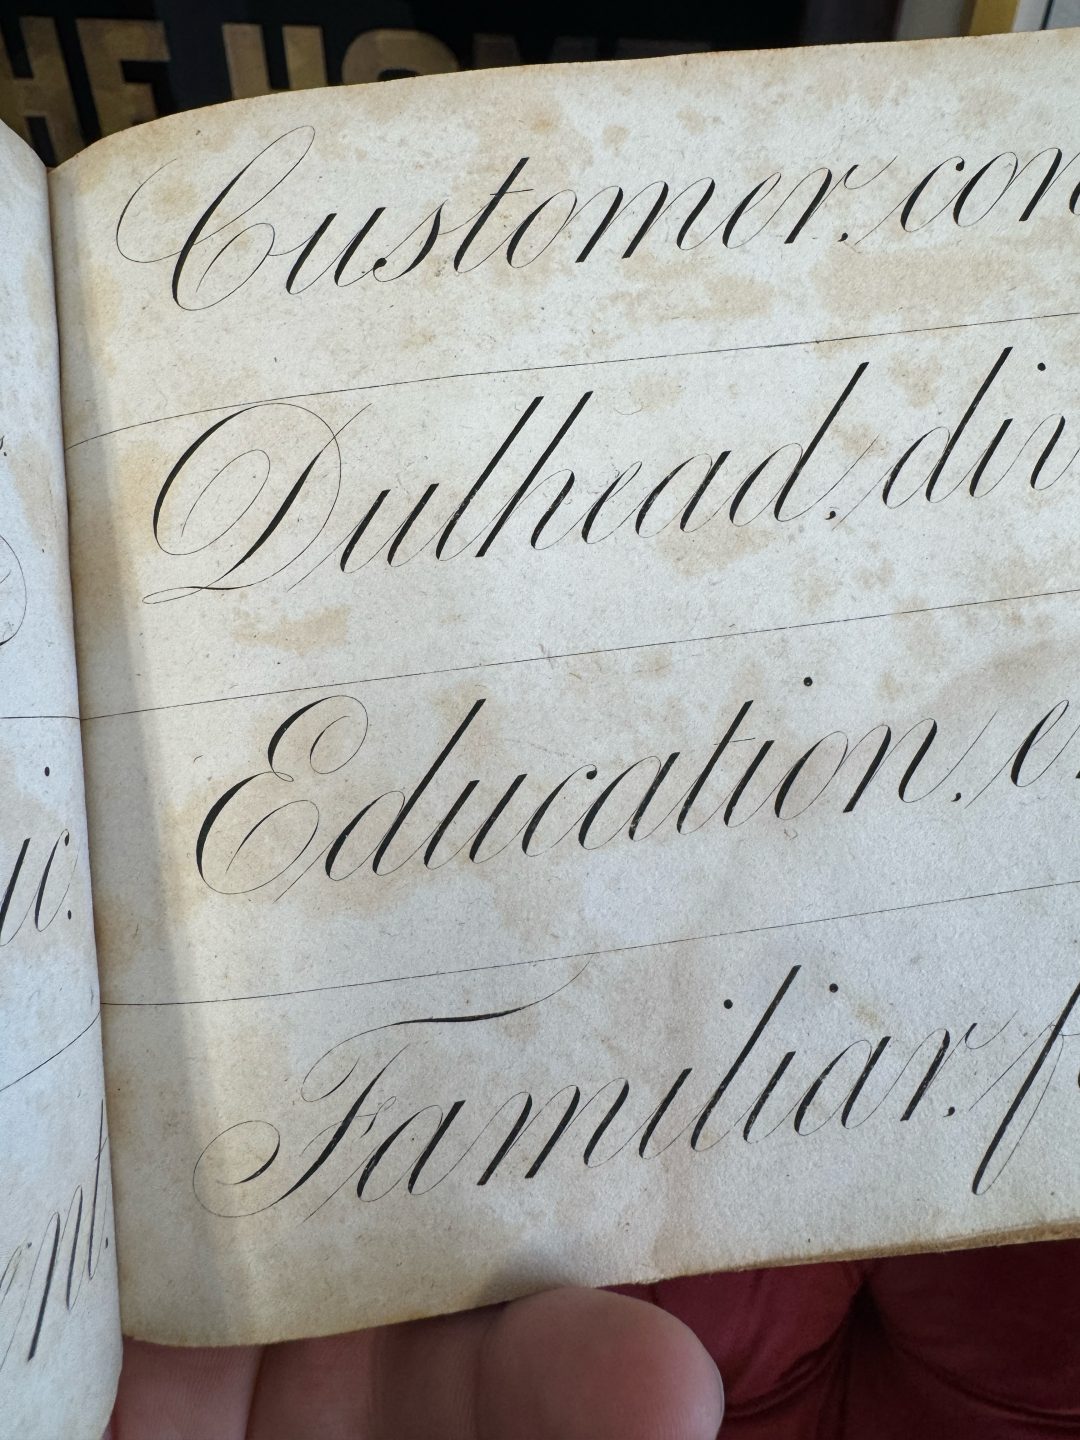 THE HOME
Customer, con
Dulhead, div
Education, e
Familiar, f